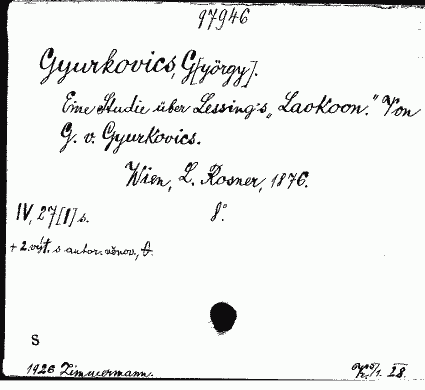 97946
Gyurkovics, G[yörgy].
Eine Studie über Lessing's „Laokoon." Von
G. v. Gyurkovics.
Wien, L. Rosner, 1876.
IV, 27[1] s. 8°
+ 2. výt. s autor. věnov.
S
1926 Zimmermann. 28.